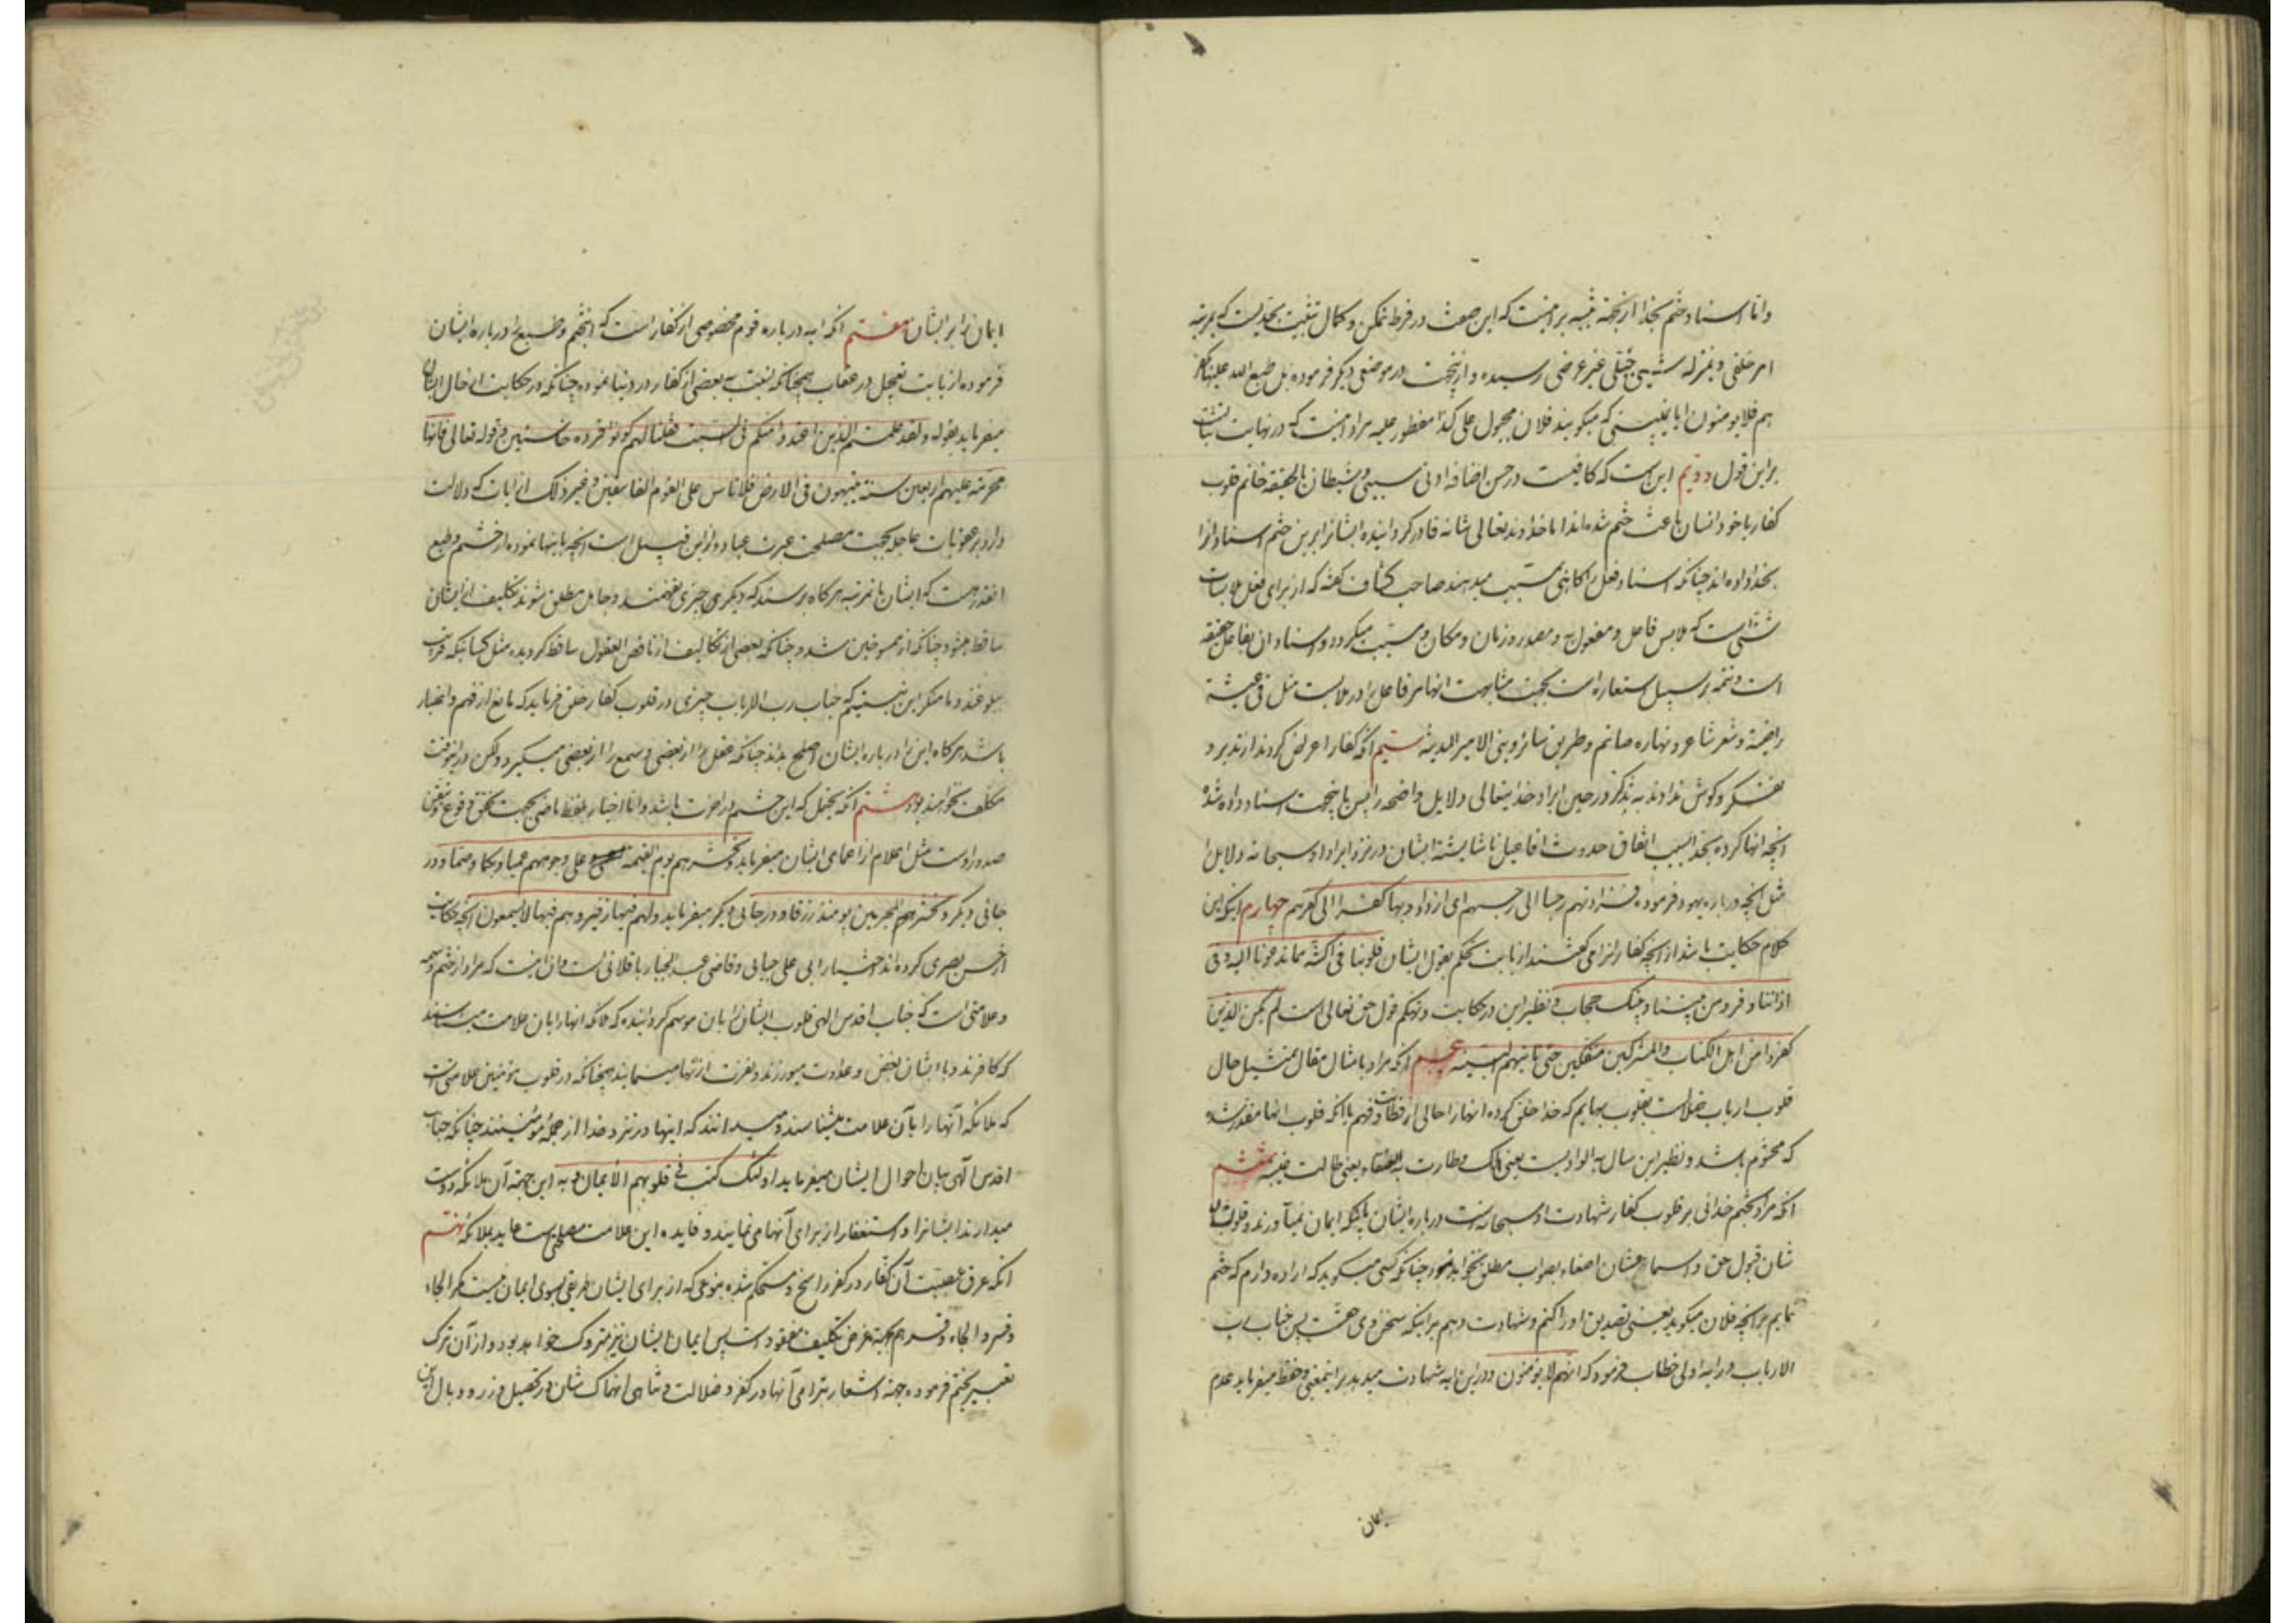 و اما اسناد ختم بخدا از جهة تنبیه بر اینست که این صفت در فرط تمکن و کمال تثبیت بحدیست که بمرتبه
امر خلقی و بمنزله شیئ جبلّی غیر عرضی رسیده و ازینجهت در موضعی دیگر فرموده بل طبع الله علیها بکفر
هم فلا یومنون ایا نمی‌بینی که میکویند فلان مجبول علی کذا مفطور علیه مراد اینست که در نهایت ثبات است
بر این قول دویم این است که کافیست در حسن اضافه ادنی سببی و شیطان بالحقیقه خاتم قلوب
کفار یا خود انسان باعث ختم شده اند اما خداوند تعالی شانه قادر کردانیده ایشانرا بر این ختم اسناد انرا
بخدا داده اند چنانکه اسناد فعل را کاهی بمسبب میدهند صاحب کشاف کفته که از برای فعل ملابسات
شتی است که ملابس فاعل و مفعول به و مصدر و زمان و مکان و مسبب میکردد و اسناد ان بفاعل حقیقه
است و تتمه بر سبیل استعاره است بجهت مشابهت انها مر فاعل را در ملابست مثل فی عیشة
راضیة و شعر شاعر و نهاره صائم و طریق سائر و بنی الامیر المدینه سیم انکه کفار اعراض کردند از تدبر و
تفکر و کوش ندادند به تذکر در حین ایراد خدایتعالی دلایل واضحه را پس باینجهت اسناد داده شد
انچه انها کرده بخدا بسبب اتفاق حدوث افاعیل ناشایسته ایشان در نزد ایراد او سبحانه دلایل را
مثل انچه درباره یهود فرموده فزادتهم رجسا الی رجسهم ای ازدادوا بها کفرا الی کفرهم چهارم اینکه این
کلام حکایت باشد از انچه کفار انرا می کفتند از بابت تحکم بقول ایشان قلوبنا فی اکنة مما تدعونا الیه و فی
اذاننا وقر و من بیننا و بینک حجاب و نظیر این در حکایت و تهکم قول حق تعالی است لم یکن الذین
کفروا من اهل الکتاب والمشرکین منفکین حتی تاتیهم البینه پنجم انکه مراد بامثال مقال تمثیل حال
قلوب ارباب ضلالست بقلوب بهایم که خدا خلق کرده انها را خالی از فطانت و فهم یا انکه قلوب انها مقدر شد
که مختوم باشد و نظیر این سال به الوادیست یعنی هلک و طارت به العنقاء یعنی طالت غیبته ششم
انکه مراد بختم خدائی بر قلوب کفار شهادت او سبحانه است درباره ایشان باینکه ایمان نمیآورند و قلوب ایشان
شان قبول حق و اسماعشان اصغاء بصواب مطلق نخواهد نمود چنانکه کسی میکوید که اراده دارم که ختم
نمایم بر انچه فلان میکوید یعنی تصدیق او را کنم و شهادت دهم بر اینکه سخن وی حقست پس جناب رب
الارباب در ایه اولی خطاب فرمود که انهم لا یومنون و در این ایه شهادت میدهد بر اینمعنی و حفظ میفرماید عدم
ایمان
ایمان را بر ایشان هفتم انکه ایه درباره قوم مخصوصی از کفار است که اینختم و طبع را درباره ایشان
فرموده از بابت تعجیل در عقاب همچنانکه نسبت به بعضی از کفار در دنیا نموده چنانکه در حکایت از حال ایشان
میفرماید بقوله ولقد علمتم الذین اعتدوا منکم فی السبت فقلنا لهم کونوا قردة خاسئین و قوله تعالی فانها
محرمة علیهم اربعین سنة یتیهون فی الارض فلا تاس علی القوم الفاسقین و غیر ذلک از ایات که دلالت
دارد بر عقوبات عاجله بجهت مصلحت عبرت عباد و از این قبیل است انچه باینها نموده از ختم و طبع
انقدر هست که ایشان بانمرتبه هرکاه برسند که دیکری چیزی نفهمند و جاهل مطلق شوند تکلیف از ایشان
ساقط میشود چنانکه از ممسوخین شد و چنانکه بعضی از تکالیف از ناقص العقول ساقط کردیده مثل کسانیکه قریب
ببلوغند و ما منکر این نیستیم که جناب رب الارباب چیزی در قلوب کفار خلق فرماید که مانع از فهم و اختیار
باشد هرکاه این را درباره ایشان اصلح بداند چنانکه عقل را از بعضی و سمع را از بعضی میکیرد و لکن در اینوقت
مکلف نخواهند بود هشتم انکه یحتمل که این ختم در اخرت باشد و اما اخبار بلفظ ماضی بجهت تحقق وقوع و تیقن
صدور اوست مثل اعلام از اعمای ایشان میفرماید و نحشرهم یوم القیمة علی وجوههم عمیا و بکما و صما و در
جائی دیکر و نحشر المجرمین یومئذ زرقا و در جائی دیکر میفرماید و لهم فیها زفیر و هم فیها لا یسمعون انچه حکایت
از حسن بصری کرده اند اختیار ابی علی جبائی و قاضی عبد الجبار باقلانی است و ان اینست که مراد از ختم و سمه
و علامتی است که جناب اقدس الهی قلوب ایشان را بان موسم کردانیده که ملائکه انها را بان علامت میشناسند
که کافرند و با ایشان بغض و عداوت میورزند و نفرت از انها مینمایند همچنانکه در قلوب مؤمنین علامتی است
که ملائکه آنها را بآن علامت میشناسند و میدانند که اینها در نزد خدا از جملهٔ مؤمنینند چنانکه جناب
اقدس آلهی بیان احوال ایشان میفرماید اولئک کتب فی قلوبهم الأیمان و به این جهته آن ملائکه دوست
میدارند ایشانرا و استغفار از برای آنها می نمایند و فایده این علامت مصلحتیست عاید بملائکه نهم
انکه عرق عصبیت آن کفار در کفر راسخ و مستحکم شده بنوعی که از برای ایشان طریقی بسوی ایمان نیست مکر الجاء
و قسر و الجاء و قسر هم بجهة غرض تکلیف مفقود است پس ایمان ایشان نیز متروک خواهد بود و از آن ترک
تعبیر بختم فرموده جهته اشعار بترامی آنها در کفر و ضلالت و تناهی انهماک شان در تحصیل وزر و وبال این